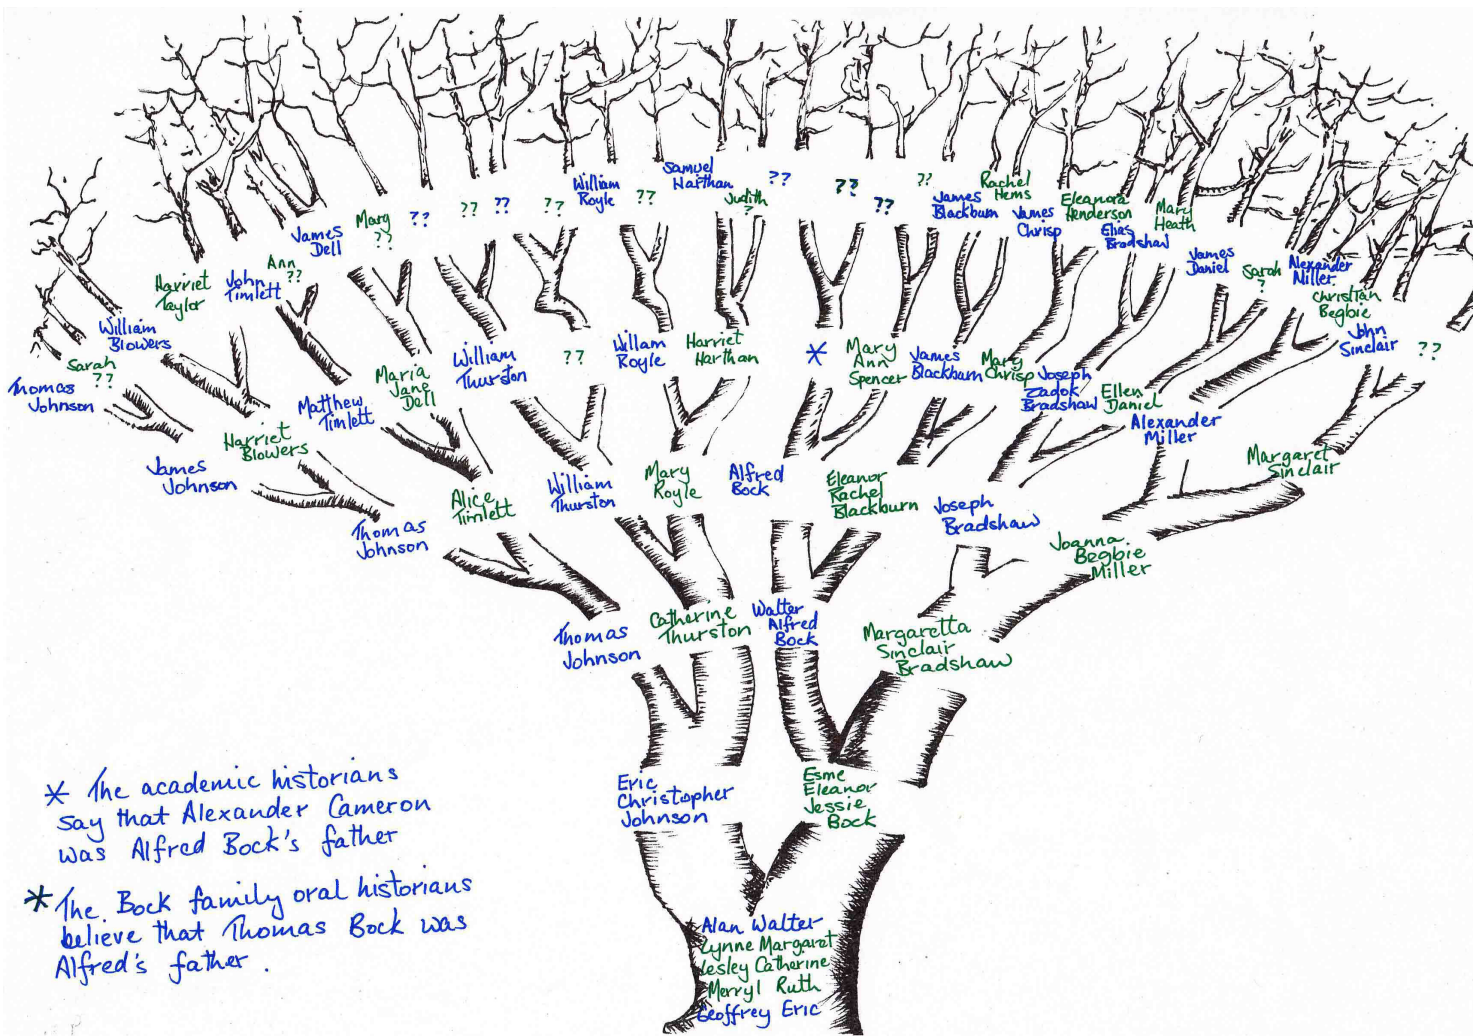 Samuel
Harthan
Judith
?
??
??
??
??
William
Royle
??
James
Blackburn
Rachel
Hems
James
Chrisp
Eleanora
Henderson
Elias
Bradshaw
Mary
Heath
James
Dell
Mary
??
??
??
??
??
Harriet
Taylor
John
Timlett
Ann
??
James
Daniel
Sarah
?
Alexander
Miller
Christian
Begbie
John
Sinclair
??
William
Blowers
Sarah
??
Thomas
Johnson
Matthew
Timlett
Maria
Jane
Dell
William
Thurston
??
Willam
Royle
Harriet
Harthan
*
Mary
Ann
Spencer
James
Blackburn
Mary
Chrisp
Joseph
Zadok
Bradshaw
Ellen
Daniel
Alexander
Miller
Margaret
Sinclair
James
Johnson
Harriet
Blowers
Thomas
Johnson
Alice
Timlett
William
Thurston
Mary
Royle
Alfred
Bock
Eleanor
Rachel
Blackburn
Joseph
Bradshaw
Joanna
Begbie
Miller
Thomas
Johnson
Catherine
Thurston
Walter
Alfred
Bock
Margaretta
Sinclair
Bradshaw
Eric
Christopher
Johnson
Esme
Eleanor
Jessie
Bock
Alan Walter
Lynne Margaret
Lesley Catherine
Merryl Ruth
Geoffrey Eric
* The academic historians
say that Alexander Cameron
was Alfred Bock's father
* The Bock family oral historians
believe that Thomas Bock was
Alfred's father.